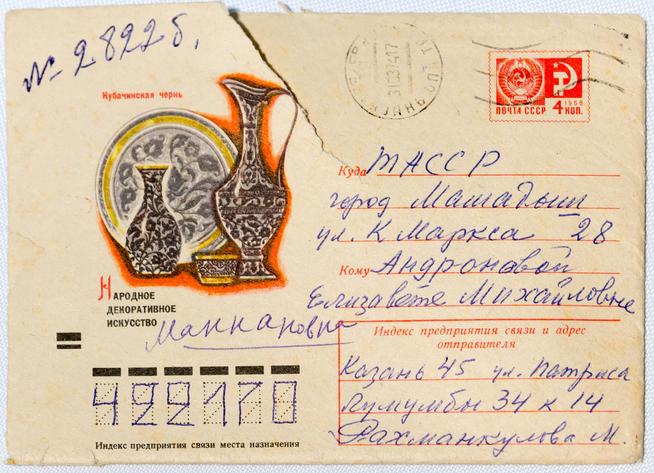 № 28226,
Кубачинская чернь
310374 17
1966
ПОЧТА СССР 4 КОП.
Куда ТАССР
город Мамадыш
ул. К Маркса 28
Кому Андроновой
Елизавете Михайловне
НАРОДНОЕ
ДЕКОРАТИВНОЕ
ИСКУССТВО
Маннановна
Индекс предприятия связи и адрес
отправителя
Казань 45 ул. Патриса
Лумумбы 34 к 14
Рахманкулова М.
422170
Индекс предприятия связи места назначения